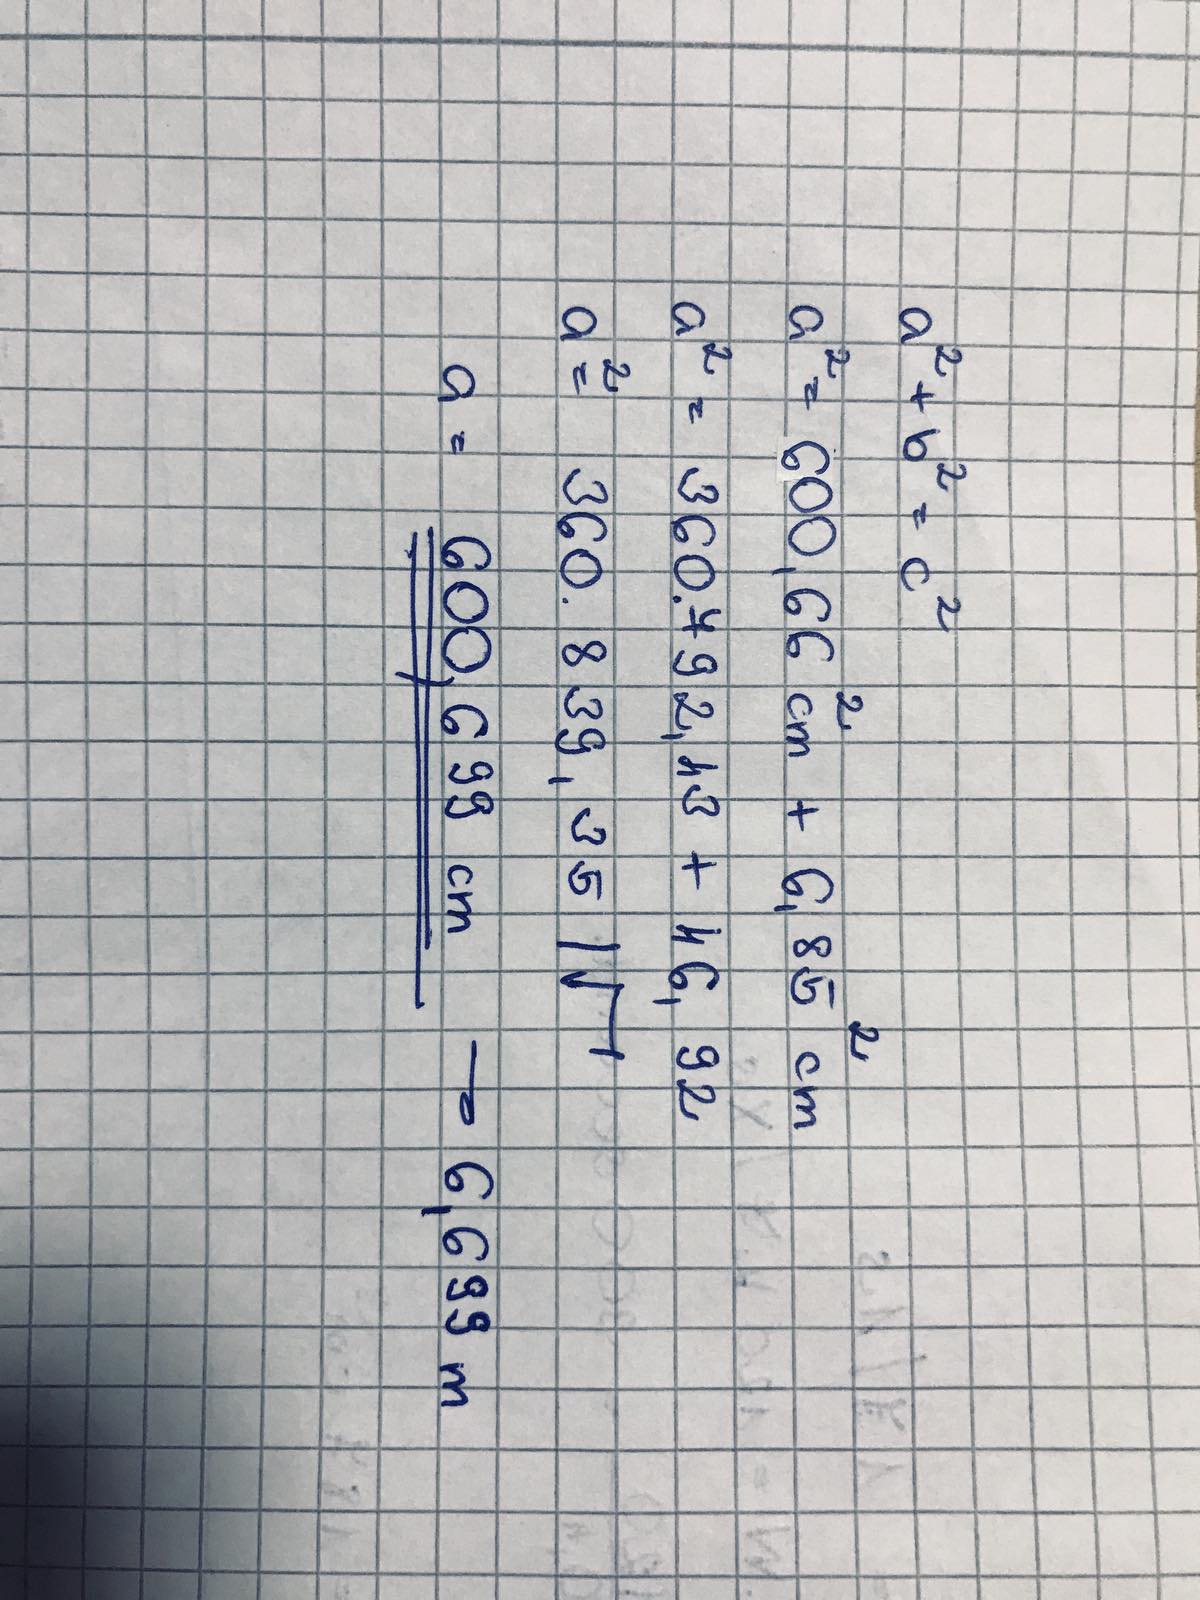 a² + b² = c²
a² = 600,66 cm² + 6,85 cm²
a² = 360.792,43 + 46,92
a² = 360.839,35 |√
a = 600,699 cm → 6,699 m